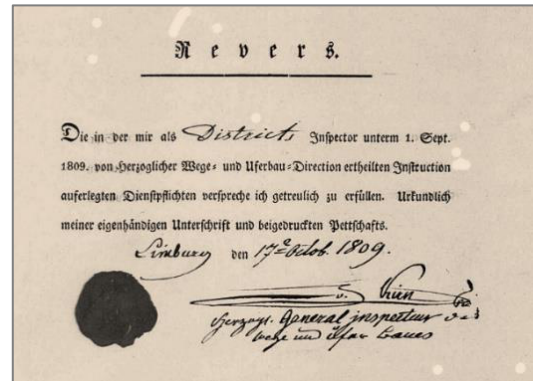 Revers.
Die in der mir als Districts Inspector unterm 1. Sept.
1809. von Herzoglicher Wege- und Uferbau-Direction ertheilten Instruction
auferlegten Dienstpflichten verspreche ich getreulich zu erfüllen. Urkundlich
meiner eigenhändigen Unterschrift und beigedruckten Pettschafts.
Limburg den 17 Octob. 1809.
v.
Herzogl. General inspecteur des
wege und ufer baues